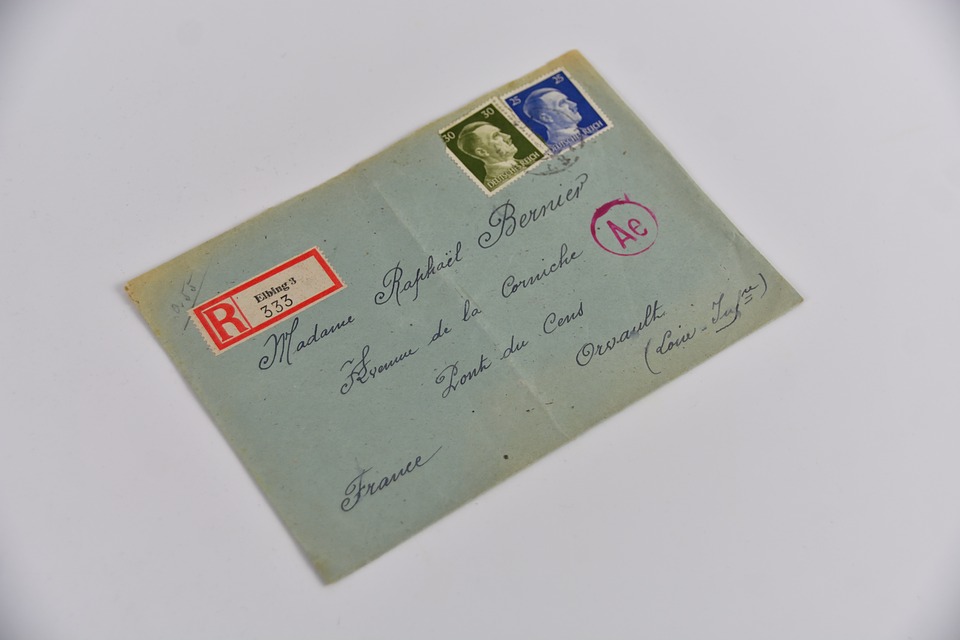 30 30
DEUTSCHES REICH
25 25
DEUTSCHES REICH
0.55
R
Elbing 3
333
Ae
Madame Raphaël Bernier
Avenue de la Corniche
Pont du Cens
Orvault
(Loire-Infre)
France